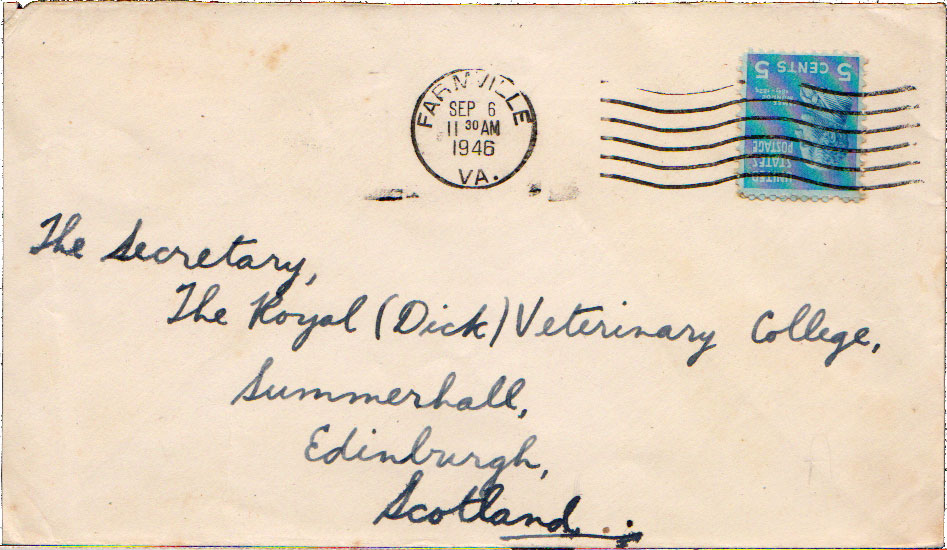 FARMVILLE
SEP 6
11 30 AM
1946
VA.
5 CENTS 5
UNITED
STATES
POSTAGE
The Secretary,
The Royal (Dick) Veterinary College,
Summerhall,
Edinburgh,
Scotland.